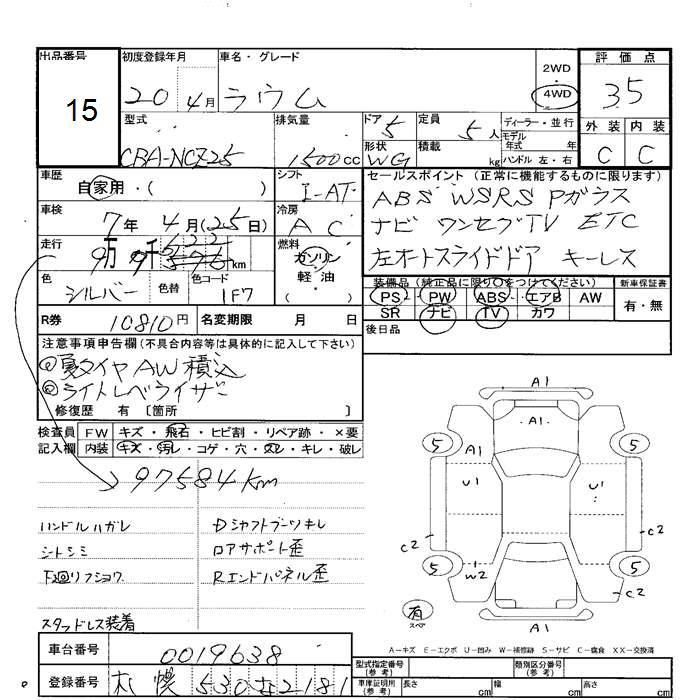 出品番号
15
初度登録年月
20 4月
車名・グレード
ラウム
2WD
・
4WD
評価点
35
外装 内装
C C
型式
CBA-NCZ25
排気量
1500cc
ドア 5
定員 5人
ディーラー・並行
モデル
年式 年
形状 WG
積載 kg
ハンドル 左・右
車歴
自家用・( )
シフト
I-AT
セールスポイント (正常に機能するものに限ります)
ABS WSRS Pガラス
ナビ ワンセグTV ETC
左オートスライドドア キーレス
車検
7年 4月(25日)
冷房
AC
走行
万 千 km
燃料
ガソリン
・
軽油
・
色
シルバー
色替
色コード
1F7
装備品 (純正品に限り○をつけてください)
PS PW ABS エアB AW
SR ナビ TV カワ
新車保証書
有・無
R券 10810円
名変期限 月 日
後日品
注意事項申告欄 (不具合内容等は具体的に記入して下さい)
夏タイヤAW積込
ライトレベライザー
修復歴 有 [箇所 ]
検査員
記入欄
FW キズ・飛石・ヒビ割・リペア跡・×要
内装 キズ・汚レ・コゲ・穴・スレ・キレ・破レ
97584km
ハンドルハガレ
Dシャフトブーツキレ
シートシミ
ロアサポート歪
下廻リフショク
Rエンドパネル歪
スタッドレス装着
A1
A1
5 5
A1
U1 U1
C2 C2
5 5
W2
有
スペア
A1
A=キズ E=エクボ U=凹み W=補修跡 S=サビ C=腐食 XX=交換済
車台番号
0019638
登録番号
札幌 530 な 2181
型式指定番号
(参考)
類別区分番号
(参考)
車庫証明用
(参考)
長さ cm 幅 cm 高さ cm